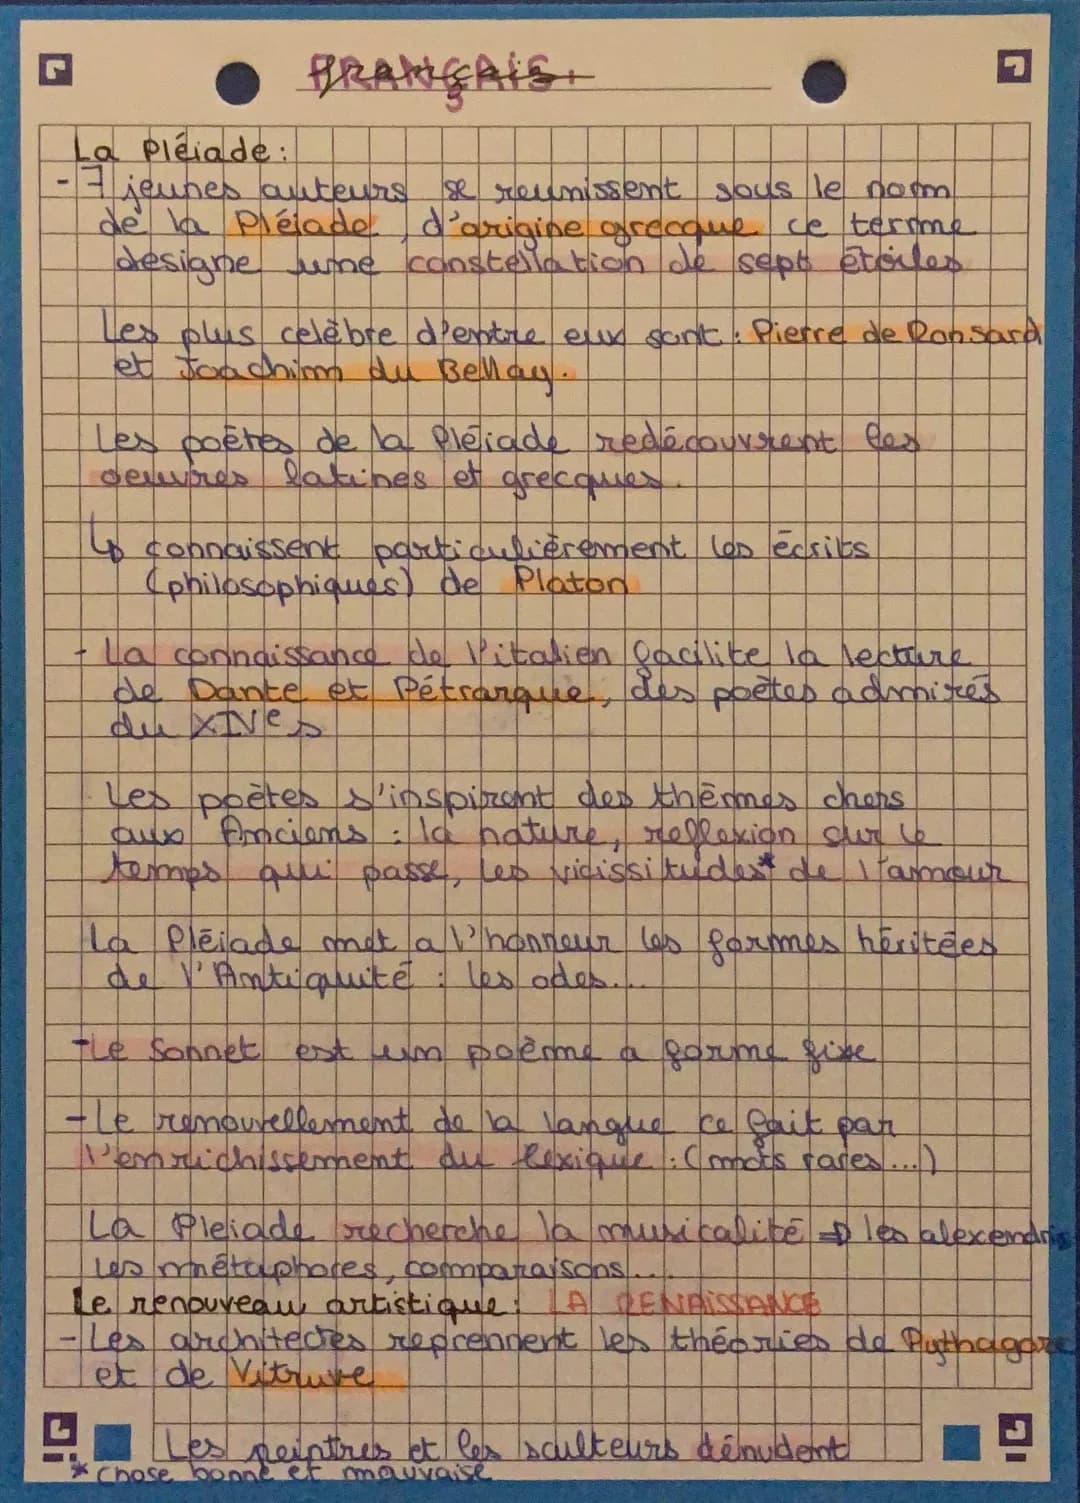 FRANÇAIS
La Pléiade :
- 7 jeunes auteurs se reunissent sous le nom
de la Pléiade, d'origine grecque ce terme
designe une constellation de sept étoiles
Les plus celèbre d'entre eux sont : Pierre de Ronsard
et Joachim du Bellay.
Les poètes de la Pléiade redécouvrent les
oeuvres latines et grecques.
↳ connaissent particulièrement les écrits
(philosophiques) de Platon
- La connaissance de l'italien facilite la lecture
de Dante et Pétrarque, des poètes admirés
du XIVe s
Les poètes s'inspirent des thèmes chers
aux Anciens : la nature, reflexion sur le
temps qui passe, les vicissitudes* de l'amour
La Pléiade met a l'honneur les formes héritées
de l'Antiquité : les odes...
- Le Sonnet est un poème a forme fixe
- Le renouvellement de la langue ce fait par
l'enrichissement du lexique : (mots rares...)
La Pleiade recherche la musicalité => les alexendris
Les métaphores, comparaisons...
Le renouveau artistique : LA RENAISSANCE
- Les architectes reprennent les théories de Pythagore
et de Vitruve
Les peintres et les sculteurs dénudent
* chose bonne et mauvaise